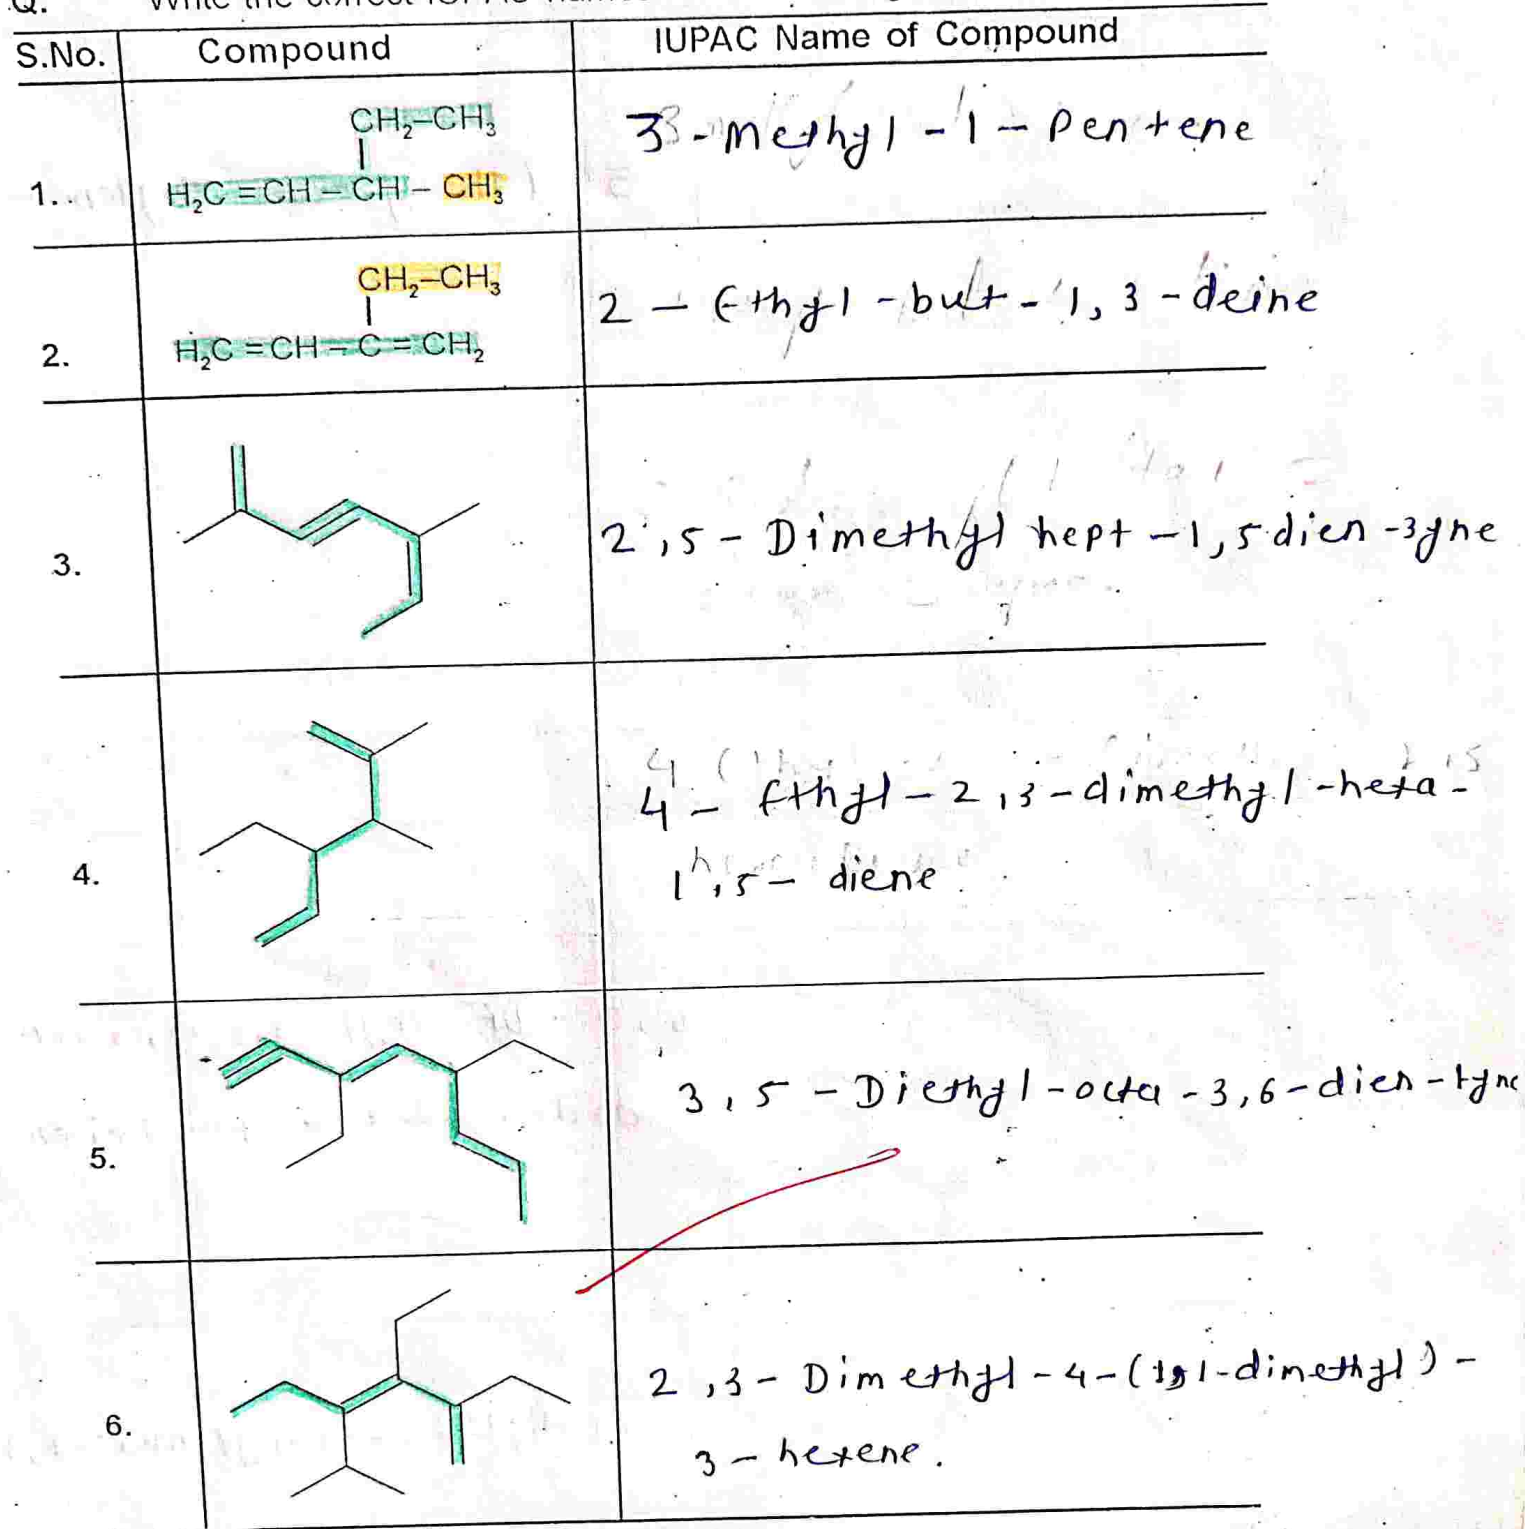 Q.
S.No. Compound IUPAC Name of Compound
CH₂–CH₃
1. H₂C=CH–CH–CH₃
3-Methyl-1-Pentene
CH₂–CH₃
2. H₂C=CH–C=CH₂
2-Ethyl-but-1,3-deine
3. 2,5-Dimethyl hept-1,5 dien-3yne
4. 4-Ethyl-2,3-dimethyl-hexa-
1,5-diene
5. 3,5-Diethyl-octa-3,6-dien-1yne
6. 2,3-Dimethyl-4-(1,1-dimethyl)-
3-hexene.